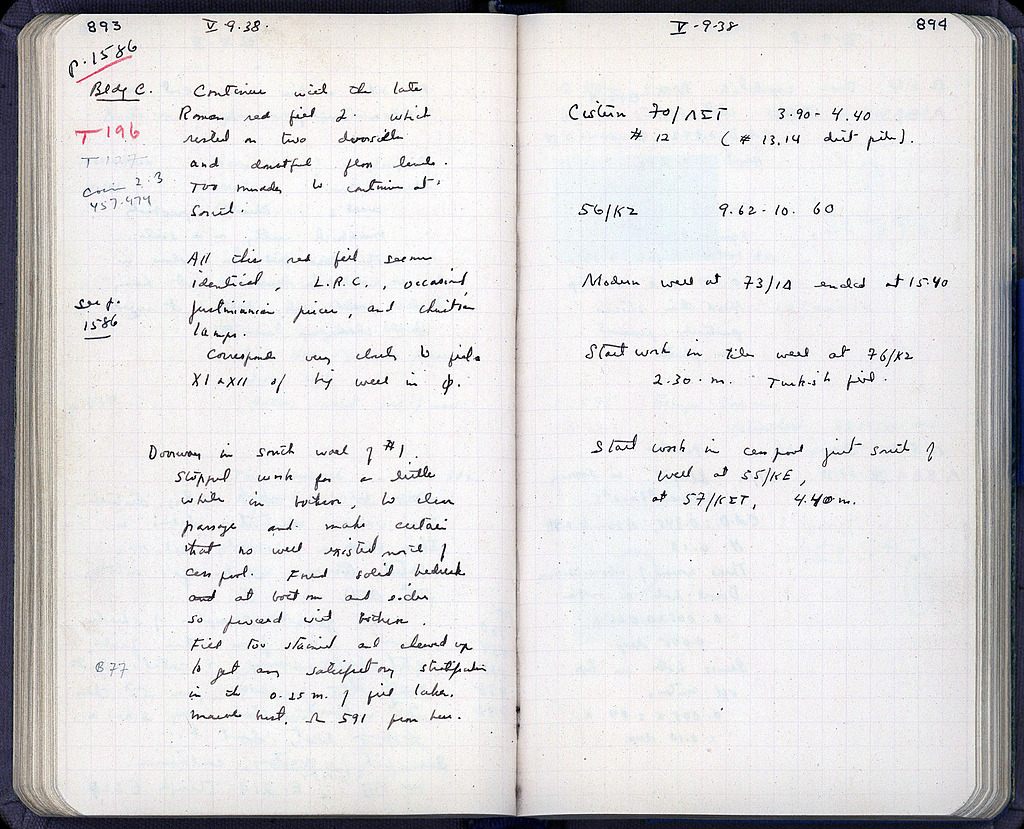 893
V-9-38.
p. 1586
Bldg C. Continue with the late
Roman red fill 2 which
T 196
rested on two doorsills
T 127
and doubtful floor levels.
Coin 2.3
457-474
Too muddy to continue at
South.
All this red fill seems
identical, L.R.C., occasional
see p.
1586
Justinianian pieces, and christian
lamps.
Corresponds very closely to fills
XI & XII of big well in φ.
Doorway in south wall of #1.
Stopped work for a little
while in bothros, to clear
passage and make certain
that no well existed north of
cess pool. Found solid bedrock
and at bottom and sides
so proceed with bothros.
Fill too stained and clawed up
B 77
to get any satisfactory stratification
in the 0.25 m. of fill taken.
591 from here.
894
V-9-38
Cistern 70/ΛΣΤ 3.90-4.40
# 12 (# 13, 14 dirt pile).
56/ΚΖ 9.62-10.60
Modern well at 73/ΙΔ ended at 15.40
Start work in tile well at 76/ΚΖ
2.30 m. Turkish fill.
Start work in cess pool just south of
well at 55/ΚΕ,
at 57/ΚΣΤ, 4.40 m.